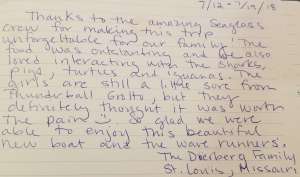 7/12 - 7/19/18
Thanks to the amazing Seaglass
crew for making this trip
unforgettable for our family. The
food was outstanding and we also
loved interacting with the sharks,
pigs, turtles and iguanas. The
girls are still a little sore from
Thunderball Grotto, but they
definitely thought it was worth
the pain 😊 So glad we were
able to enjoy this beautiful
new boat and the wave runners.
The Dierberg Family
St. Louis, Missouri